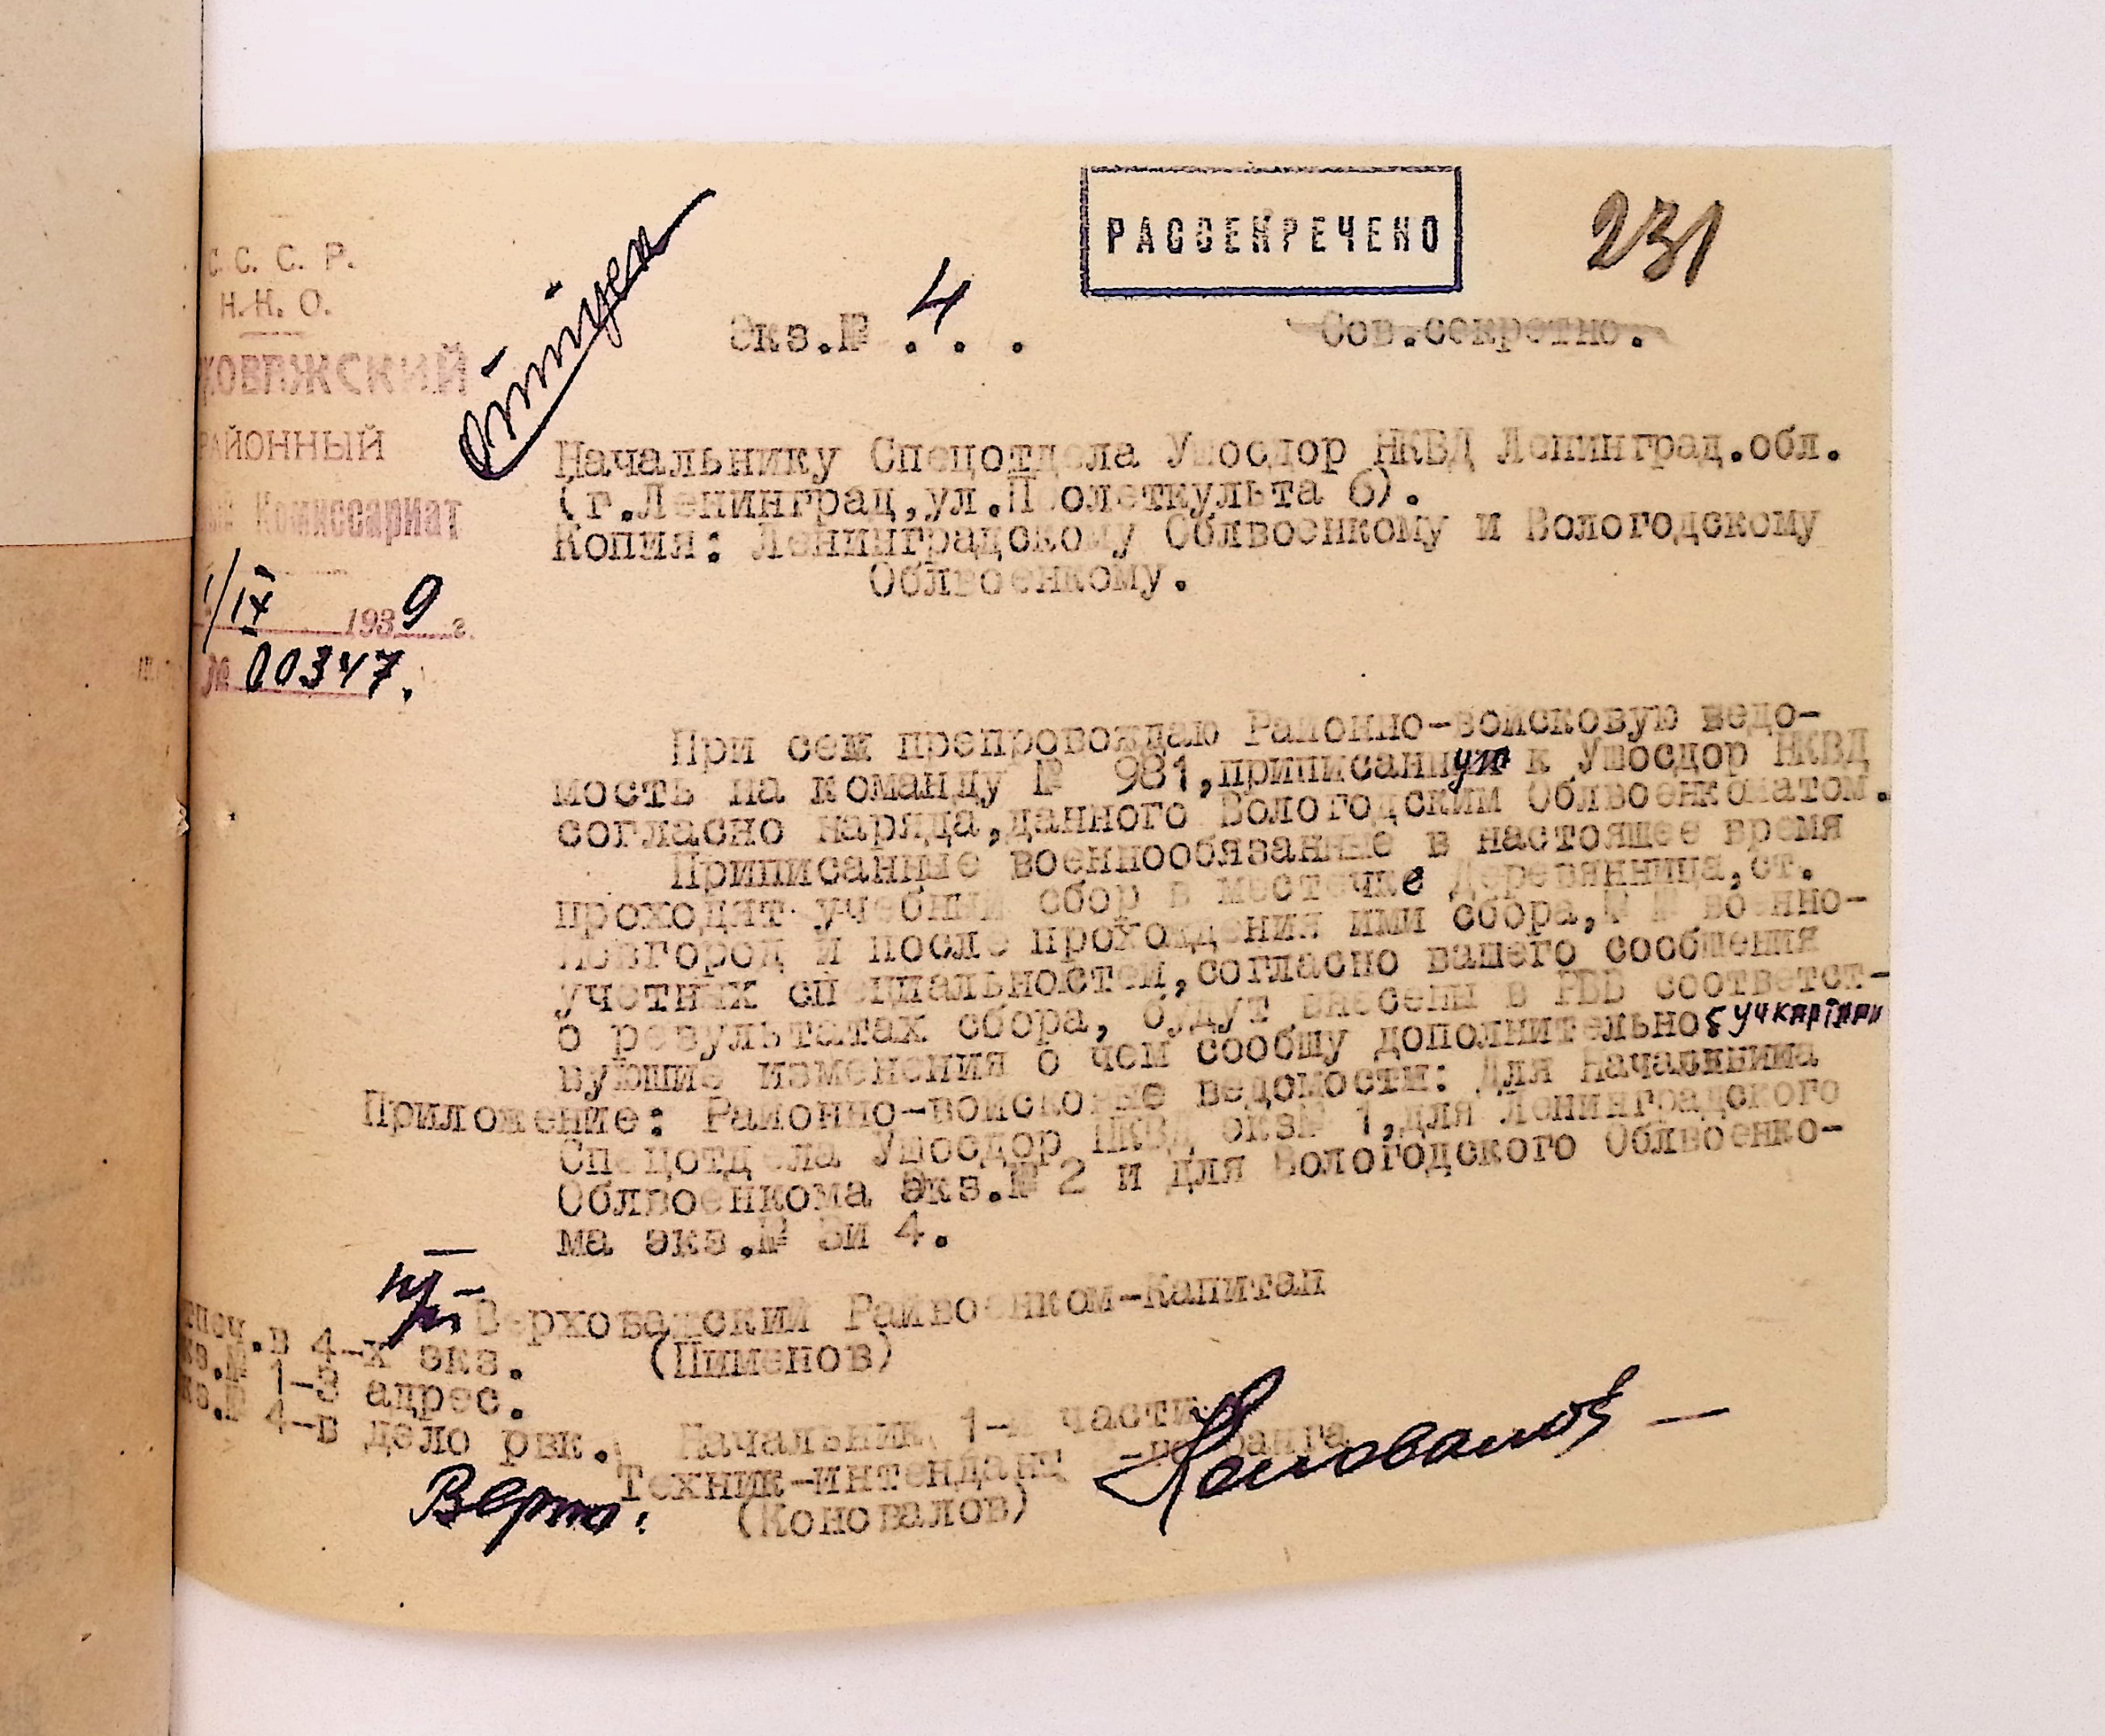 С. С. С. Р.
Н.К.О.
ХОВАЖСКИЙ
РАЙОННЫЙ
ый Комиссариат
1/IX 1939 г.
№ 00347.
РАССЕКРЕЧЕНО
231
Экз.№ 4 . . .
Сов.секретно.
Начальнику Спецотдела Ушосдор НКВД Ленинград.обл.
(г.Ленинград,ул.Пролеткульта 6).
Копия: Ленинградскому Облвоенкому и Вологодскому
Облвоенкому.
При сем препровождаю Районно-войсковую ведо-
мость на команду № 981,приписанную к Ушосдор НКВД
согласно наряда,данного Вологодским Облвоенкоматом.
Приписанные военнообязанные в настоящее время
проходят учебный сбор в местечке Деревянница,ст.
Новгород и после прохождения ими сбора,№ № военно-
учетных специальностей,согласно вашего сообщения
о результатах сбора, будут внесены в РВВ соответст-
вующие изменения о чем сообщу дополнительно с учкартами
Приложение: Районно-войсковые ведомости: Для Начальника
Спецотдела Ушосдор НКВД экз№ 1,для Ленинградского
Облвоенкома Экз.№ 2 и для Вологодского Облвоенко-
ма экз.№ 3и 4.
Верховажский Райвоенком-Капитан
(Пименов)
тпеч.в 4-х экз.
кз.№ 1-3 адрес.
кз.№ 4-в дело рвк.
Начальник 1-й части
Техник-интендант 2-го ранга
(Коновалов)
Верно:
Коновалов